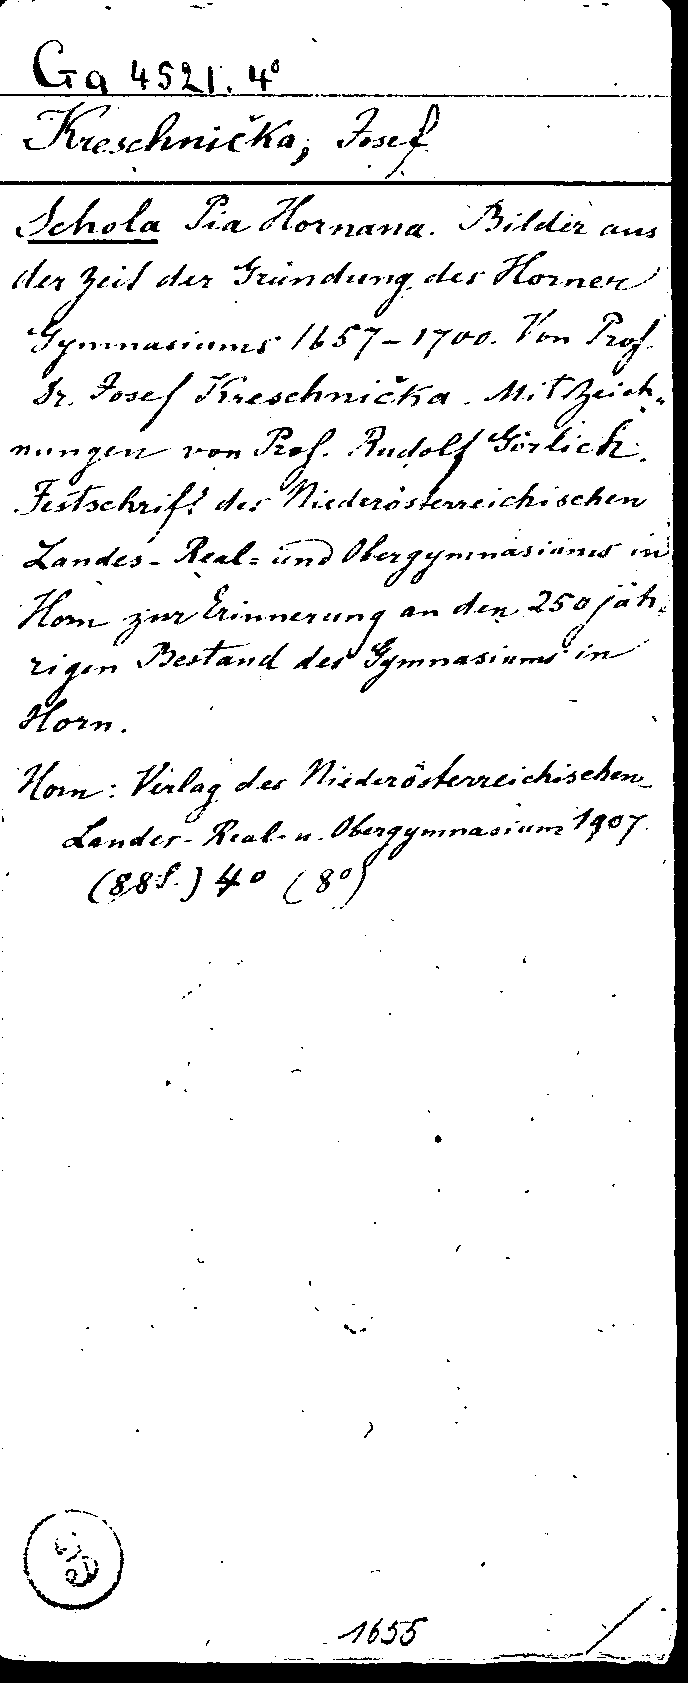 Ga 4521. 4°
Kreschnička, Josef
Schola Pia Hornana. Bilder aus
der Zeit der Gründung des Horner
Gymnasiums 1657-1700. Von Prof.
Dr. Josef Kreschnička. Mit Zeich-
nungen von Prof. Rudolf Görlich.
Festschrift des Niederösterreichischen
Landes-Real- und Obergymnasiums in
Horn zur Erinnerung an den 250jäh-
rigen Bestand des Gymnasiums in
Horn.
Horn: Verlag des Niederösterreichischen
Landes-Real- u. Obergymnasiums 1907.
(88 S.) 4° (8°)
1655